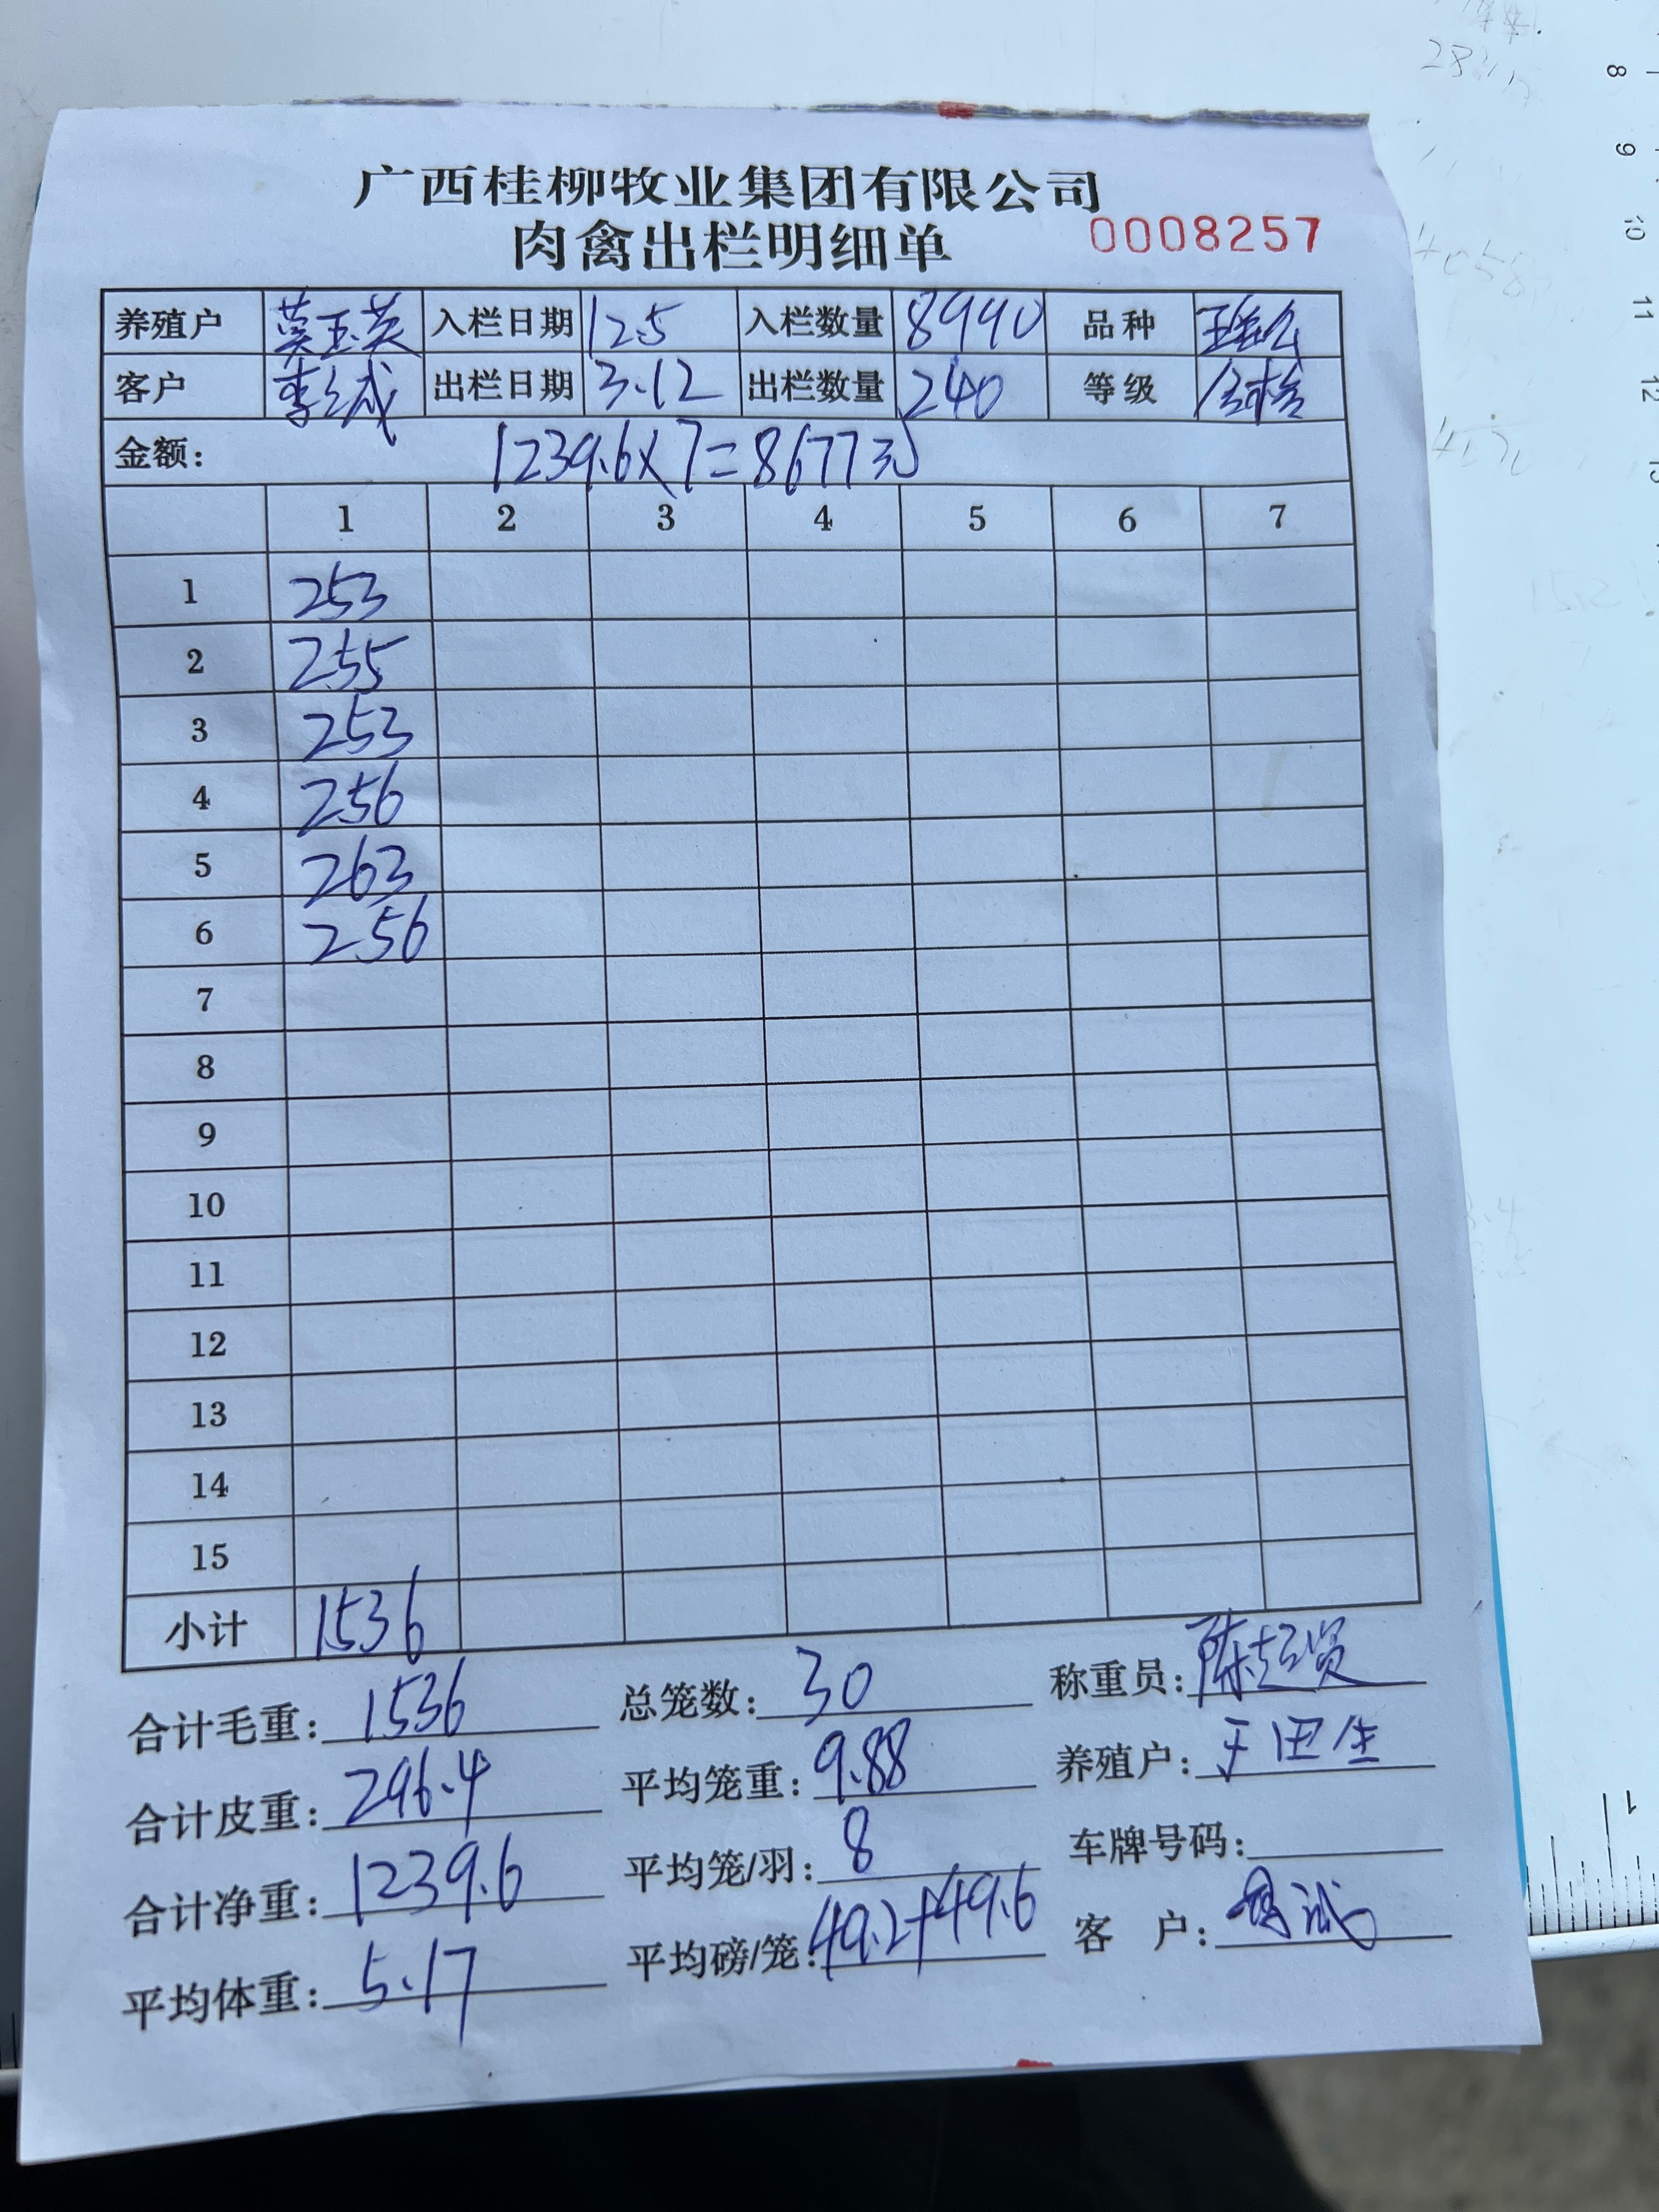 广西桂柳牧业集团有限公司
肉禽出栏明细单 0008257
养殖户 莫玉英 入栏日期 12.5 入栏数量 8990 品种
客户 李 成 出栏日期 3.12 出栏数量 240 等级 合格
金额: 1239.6×7=8677元
1 2 3 4 5 6 7
1 253
2 255
3 253
4 256
5 263
6 256
7
8
9
10
11
12
13
14
15
小计 1536
合计毛重: 1536 总笼数: 30 称重员: 陈超贤
合计皮重: 296.4 平均笼重: 9.88 养殖户: 田生
合计净重: 1239.6 平均笼/羽: 8 车牌号码:
平均体重: 5.17 平均磅/笼: 49.2+49.6 客 户:
8
9
10
11
12
13
1